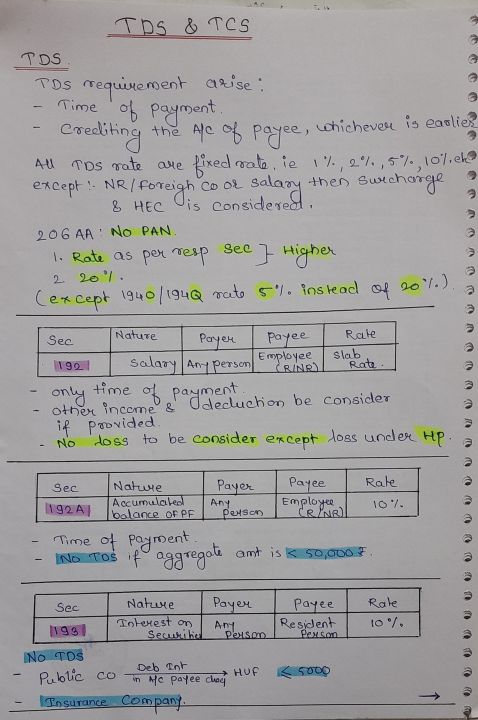 TDS & TCS
TDS
TDS requirement arise :
- Time of payment.
- Crediting the A/c of payee, whichever is earlier
All TDS rate are fixed rate. ie 1%, 2%, 5%, 10% etc
except :- NR/Foreigh co or salary then surcharge
& HEC is considered.
206 AA : NO PAN
1. Rate as per resp sec } Higher
2 20%.
(except 194O/194Q rate 5% instead of 20%.)
Sec Nature Payer Payee Rate
192 Salary Any person Employee (R/NR) Slab Rate.
- only time of payment.
- other income & deduction be consider
if provided.
- No loss to be consider except loss under HP.
Sec Nature Payer Payee Rate
192A Accumulated balance of PF Any Person Employee (R/NR) 10%.
- Time of payment.
- No TDS if aggregate amt is < 50,000 ₹.
Sec Nature Payer Payee Rate
193 Interest on Securities Any Person Resident Person 10%.
No TDS
- Public CO Deb Int in A/c payee cheq → HUF ≤ 5000
- Insurance Company. →